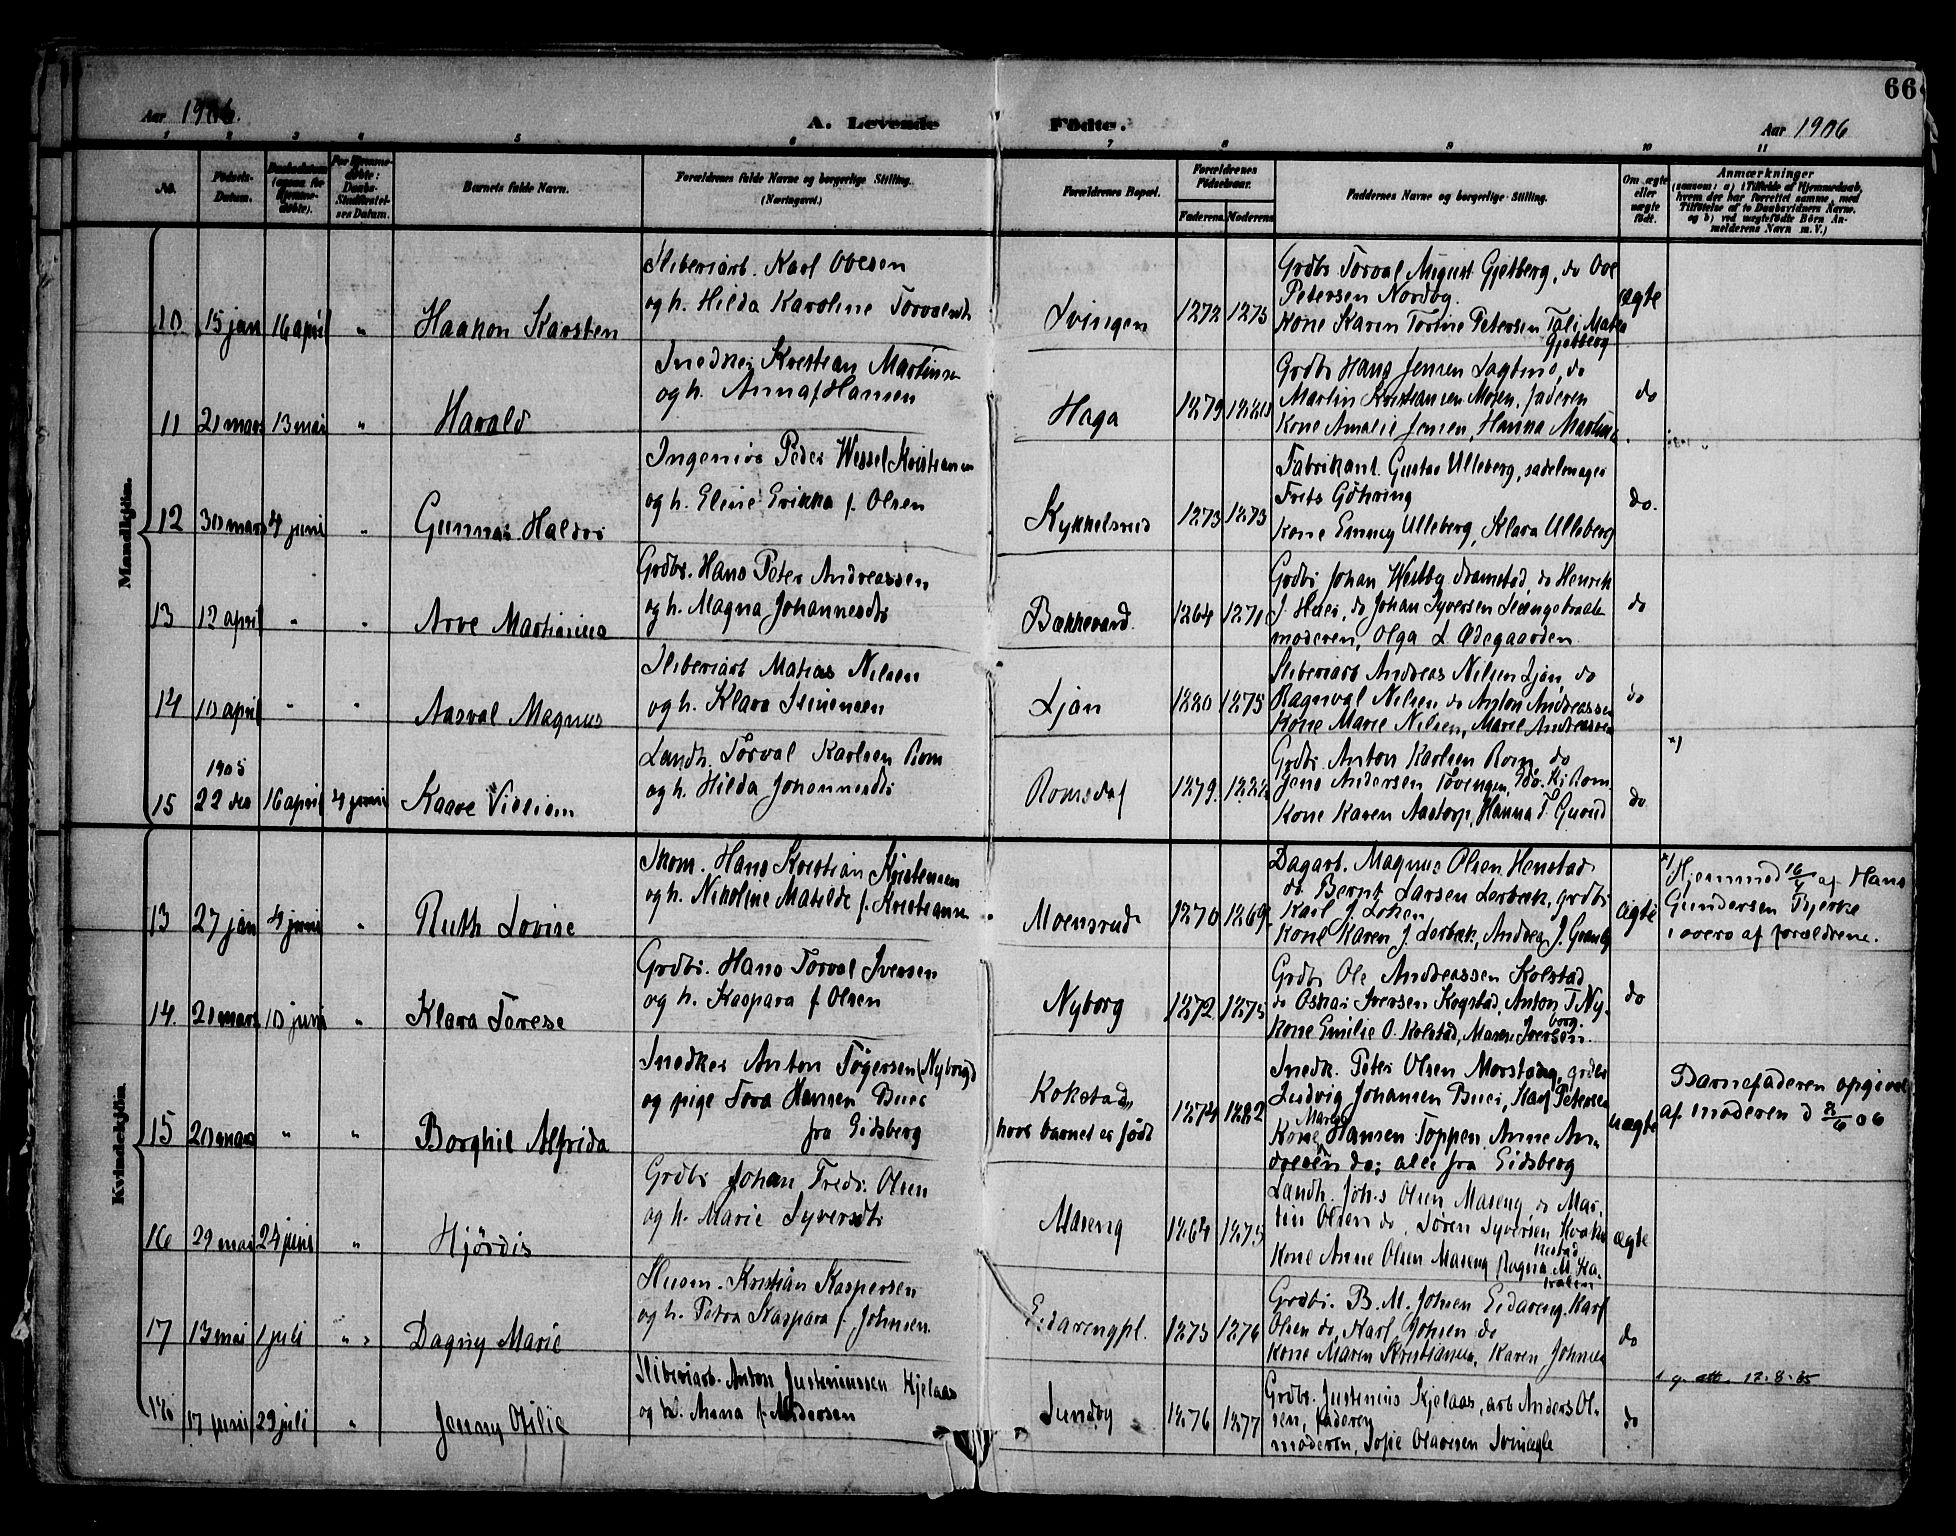 66
Aar 1906.
A. Levende Födte.
Aar 1906
1 2 3 4 5 6 7 8 9 10 11
No.
Födsels-Datum.
Daabsdatum (ogsaa for Hjemme-döbte).
For Hjemme-döbte: Daabs-Stadfæstel-ses Datum.
Barnets fulde Navn.
Forældrenes fulde Navne og borgerlige Stilling.
(Næringsvei.)
Forældrenes Bopæl.
Forældrenes Födselsaar.
Faderens. Moderens.
Faddernes Navne og borgerlige Stilling.
Om ægte eller uægte födt.
Anmærkninger
(saasom: a) i Tilfælde af Hjemmedaab,
hvem der har forrettet samme, med
Tilföielse af to Daabsvidners Navne,
og b) ved uægtefödte Börn An-
melderens Navn m. V.)
Mandkjön.
10 15 jan 16 april " Haakon Karsten
Sliberiarb. Karl Ovesen
og h. Hilda Karoline Torvalsdt
Svingen 1872 1873
Grdbr Torval August Gjetberg, do Ove
Petersen Nordby.
Kone Karen Torine Petersen
Gjetberg
ægte
11 21 mars 13 mai " Harald
Snedker Kristian Martinsen
og h. Anna f. Hansen
Haga 1879
Grdbr Hans Jensen do
Martin Kristiansen Mosen, faderen
Kone Amalie Jensen, Hanna Martinsen
do
12 30 mars 4 juni " Gunnar Haldor
Ingeniör Peder Wessel Kristiansen
og h. Eline Erikka f. Olsen
Kykkelsrud 1873 1873
Fabrikant Gustav Ulleberg, sadelmager
Frits Göhring
Kone Emmy Ulleberg, Klara Ulleberg
do.
13 12 april " " Arve Martinius
Grdbr. Hans Peter Andreassen
og h. Magna Johannesdt
Bækkevard 1864 1870
Grdbr Johan Westby Framstad, do Henrik
J. Huer, do Johan Syversen
moderen, Olga L Ødegaarden
do
14 10 april " " Aasval Magnus
Sliberiarb Matias Nilsen
og h. Klara Simensen
Ljan 1880 1875
Sliberiarb Andreas Nilsen Ljan, do
Ragnval Nilsen do Anton Andreassen
Kone Marie Nilsen, Marie Andreassen
do
15 1905 22 des 16 april 4 juni Kaare Villiam
Landh. Torval Karlsen Rom
og h. Hilda Johannesdt
Romsdal 1879.
Grdbr. Anton Karlsen Rom, do
Jens Andersen Tovengen, Edv. K. Rom
Kone Karen Aastorp, Hanna T. Gusrud
do
x)
Kvindekjön.
13 27 jan 4 juni " Ruth Lovise
Skom. Hans Kristian Kristensen
og h. Nikoline Matilde f. Kristiansen
Moensrud 1870 1869
Dagarb. Magnus Olsen Henstad
do Bernt Larsen Lerbæk, grdbr
Karl J. Loken
Kone Karen J Lerbæk, Andrea J. Granby
ægte
x) Hjemmed 16/4 af Hans
Gundersen Bjerke
i overv af forældrene.
14. 21 mars 10 juni " Klara Torese
Grdbr. Hans Torval Iversen
og h. Kaspara f Olsen
Nyborg 1872 1875
Grdbr Ole Andreassen Kolstad
do Oskar Iversen Kogstad, Anton T Ny-
borg.
Kone Emilie O. Kolstad, Maren Iversen.
do
15 20 mars " " Borghil Alfrida
Snedker Anton Tögersen (Nyborg)
og pige Tora Hansen Buer
fra Eidsberg
Kokstad
hvor barnet er födt
1874 1882
Snedk. Peter Olsen Morstong, grdbr
Ludvig Johansen Buer, Karl Petersen
Kone Maren Hansen Toppen, Anne An-
dresen do; alle fra Eidsberg
uægte
Barnefaderen opgivet
af moderen d 8/6 06
16 29 mai 24 juni " Hjördis
Grdbr Johan Fredr. Olsen
og h. Marie Syversdt
Maseng 1864 1875
Landh. Johs Olsen Maseng, do Mar-
tin Olsen do, Sören Syversen
Kone Anne Olsen Maseng Ragna M.
ægte
17 13 mai 1 juli " " Dagny Marie
Husm. Kristian Kaspersen
og h. Petra Kaspara f. Johnsen.
Eidarengpl. 1873 1876
Grdbr. B. M. Johsen Eidareng, Karl
Olsen do, Karl Johsen do
Kone Maren Kristiansen, Karen Johnsen
do
18 17 juni 29 juli " Jenny Otilie
Sliberiarb. Anton Justiniussen Kjelaas
og h. Anna f. Andersen
Sundby 1876 1877
Grdbr. Justinius Kjelaas, arb Anders Ol-
sen, faderen
moderen, Sofie Olavesen
do
att. 12-8-85